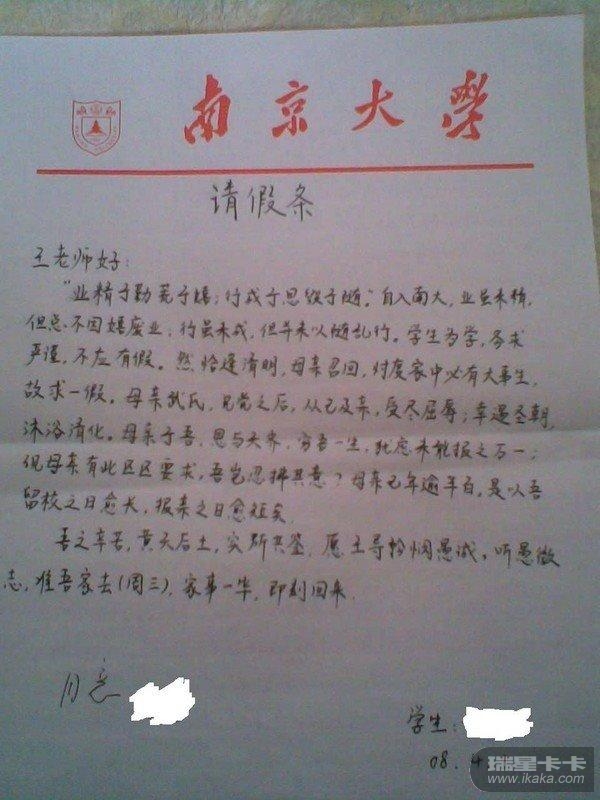 南京大學
请假条
王老师好：
"业精于勤荒于嬉；行成于思毁于随。"自入南大，业虽未精，
但总不因嬉废业；行虽未成，但并未以随乱行。学生为学，务求
严谨，不应有假。然恰逢清明，母亲召回，忖度家中必有大事生，
故求一假。母亲武氏，兄党之后，从己及亲，受尽屈辱；幸遇圣朝，
沐浴清化。母亲于吾，恩与天齐，穷吾一生，犹恐未能报之万一；
但母亲有此区区要求，吾岂忍拂其意？母亲已年逾半百，是以吾
留校之日愈长，报亲之日愈短矣。
吾之辛苦，黄天后土，实所共鉴，愿王导怜悯愚诚，听愚微
志，准吾家去(周三)，家事一毕，即刻回来.
同意
学生：
08.4
瑞星卡卡
www.ikaka.com